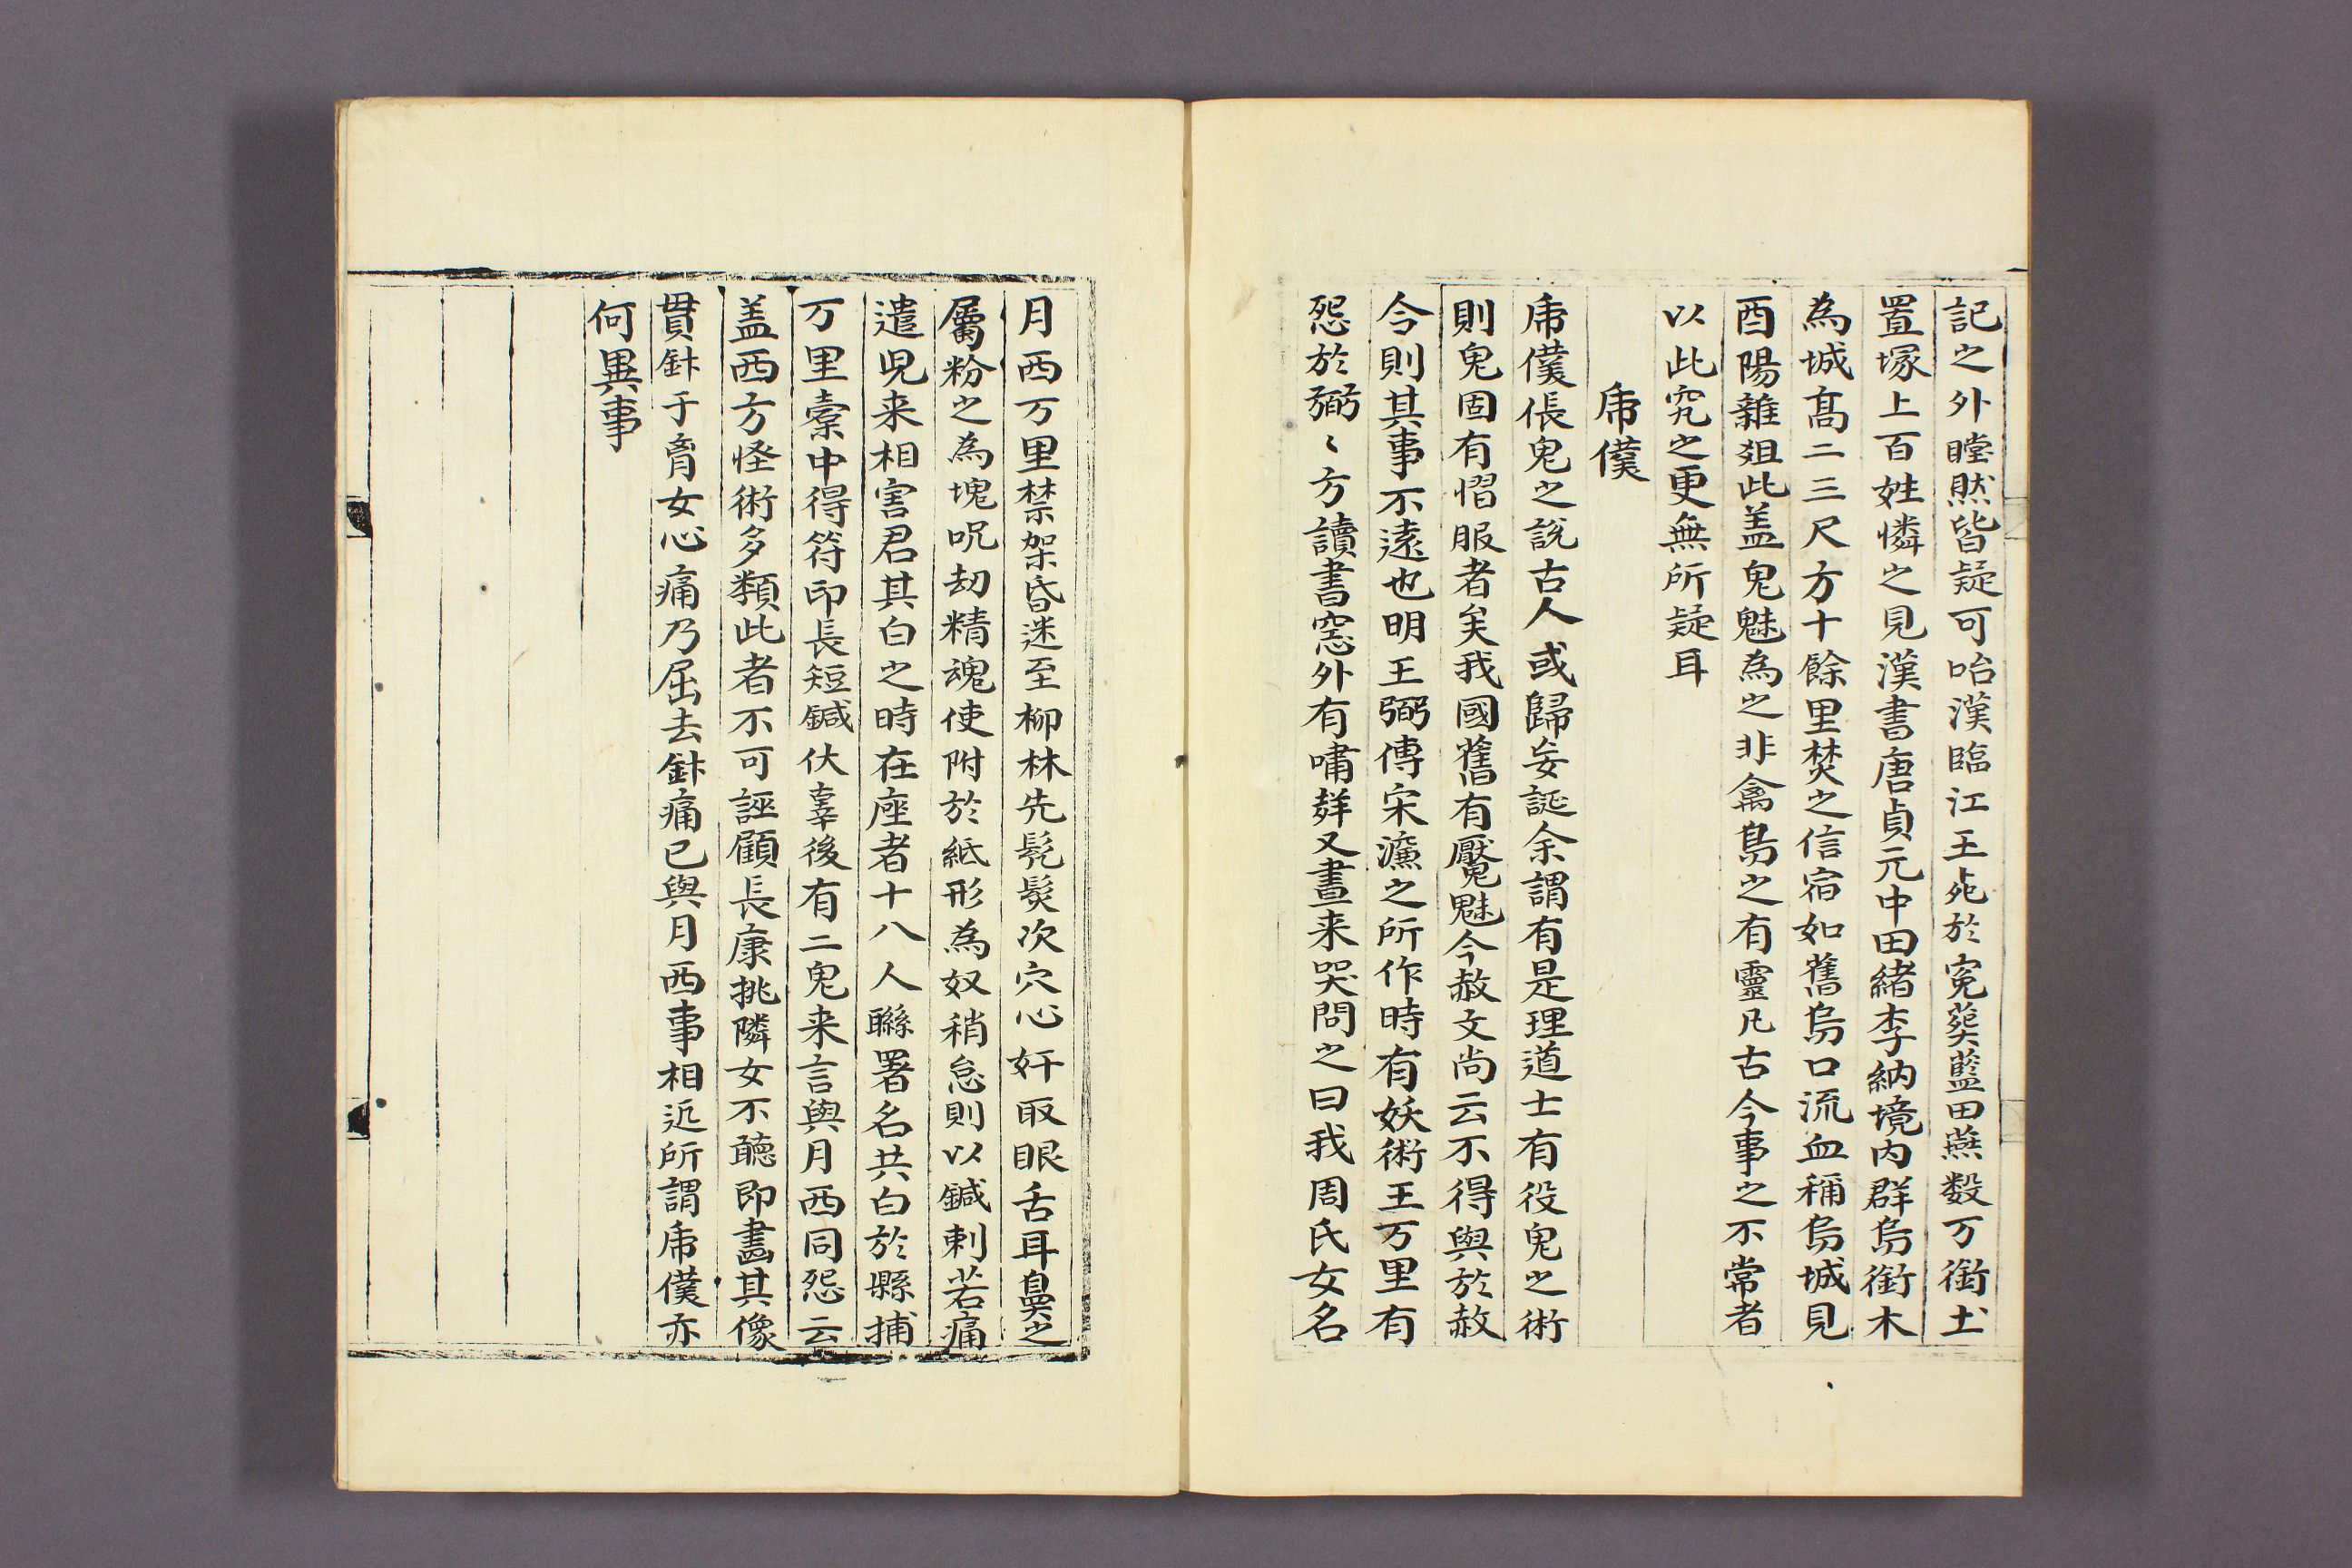 記之外瞠然皆疑可咍漢臨江王死於寃葬藍田燕数万銜土
置塚上百姓憐之見漢書唐貞元中田緒李納境内群烏銜木
為城高二三尺方十餘里焚之信宿如舊烏口流血稱烏城見
酉陽雜爼此盖鬼魅為之非禽鳥之有靈凡古今事之不常者
以此究之更無所疑耳
乕僕
乕僕倀鬼之説古人或歸妄誕余謂有是理道士有役鬼之術
則鬼固有慴服者矣我國舊有魘魅今赦文尚云不得與於赦
今則其事不遠也明王弼傳宋濂之所作時有妖術王万里有
怨於弼〻方讀書窓外有嘯聲又晝来哭問之曰我周氏女名
月西万里禁架昏迷至柳林先髠髮次穴心奸取眼舌耳鼻之
屬粉之為塊呪刧精魂使附於紙形為奴稍怠則以鍼刺若痛
遣児来相害君其白之時在座者十八人聯署名共白於縣捕
万里橐中得符印長短鍼伏辜後有二鬼来言與月西同怨云
盖西方怪術多類此者不可誣顧長康挑隣女不聽即畵其像
貫針于肓女心痛乃屈去針痛已與月西事相近所謂乕僕亦
何異事